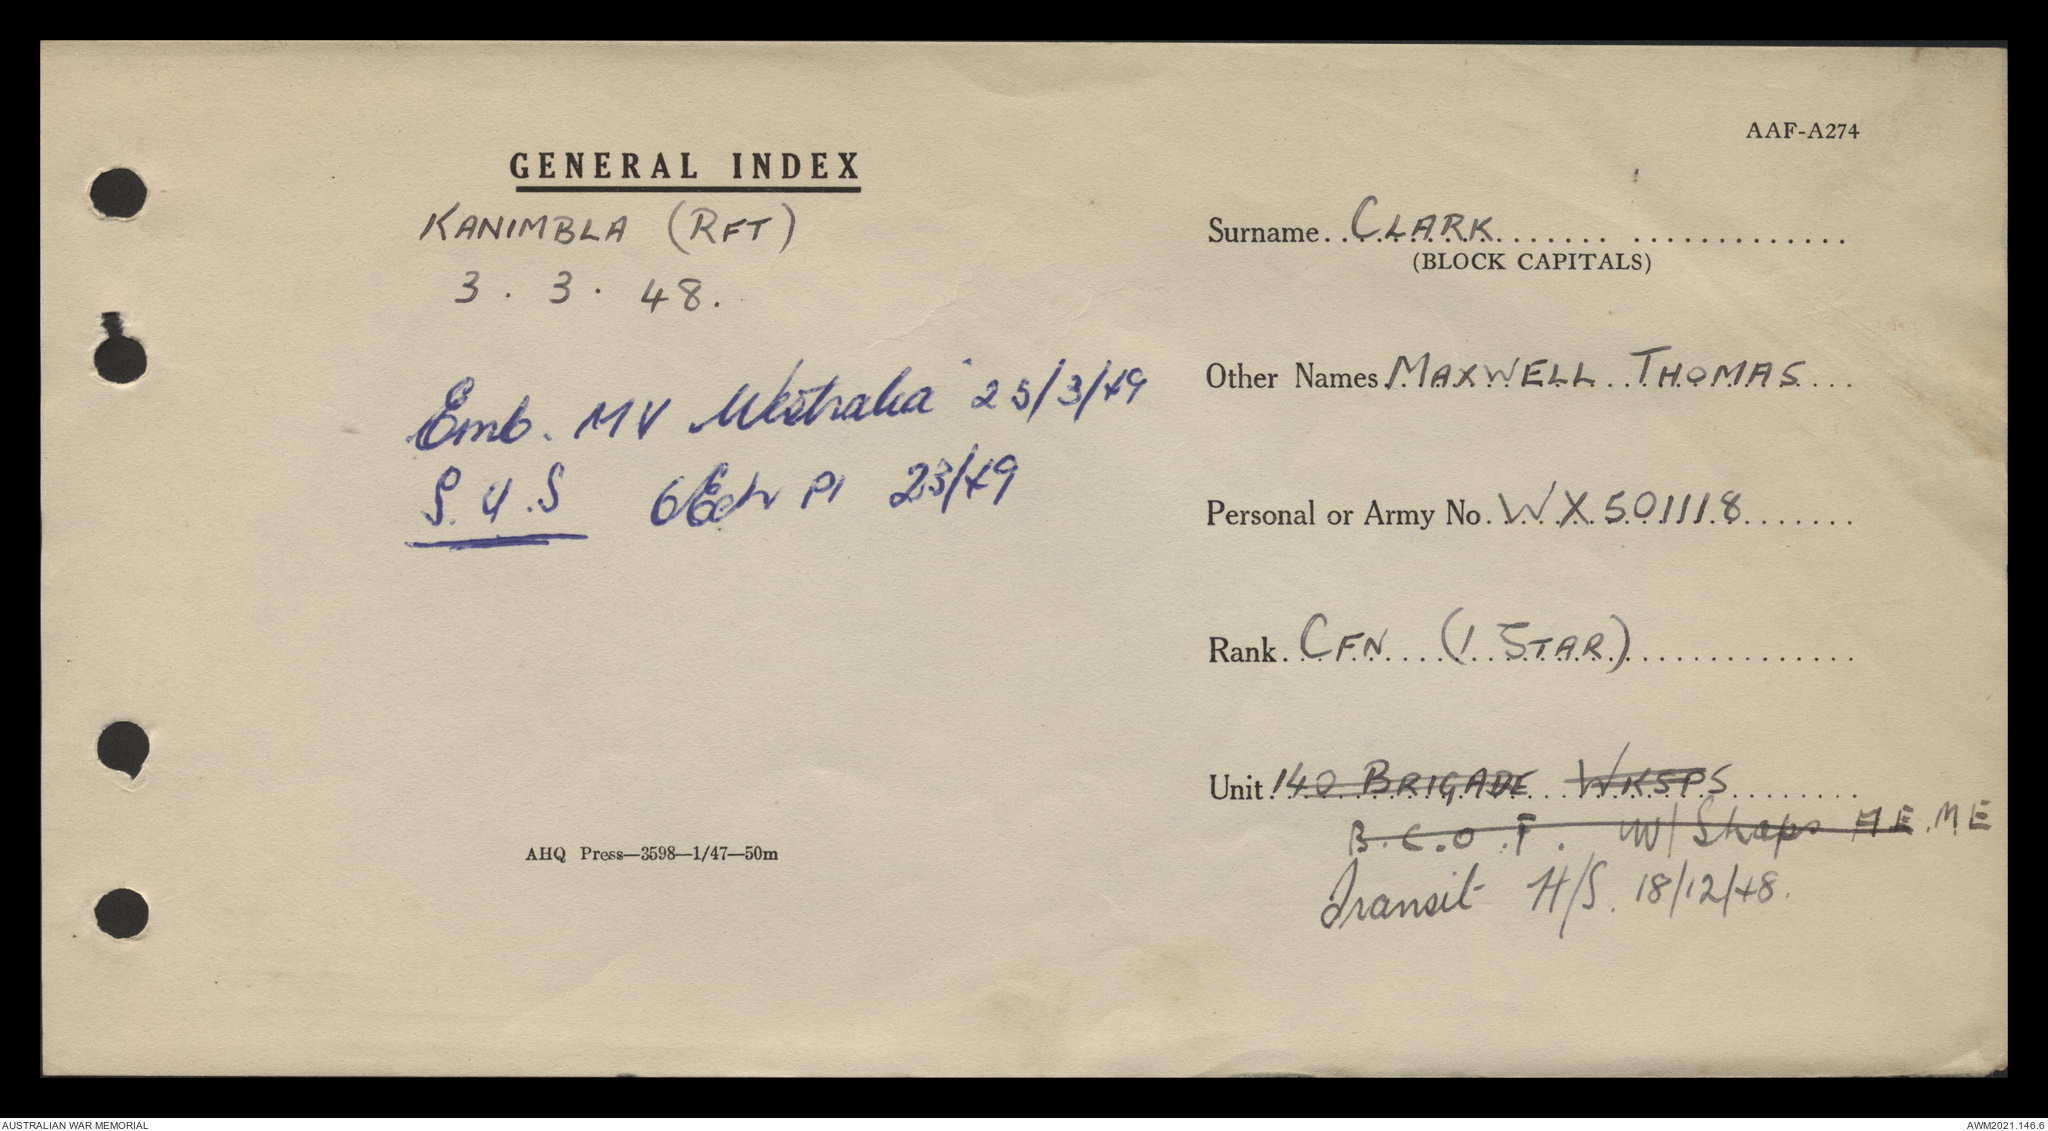 AAF-A274
GENERAL INDEX
KANIMBLA (RFT)
3.3.48.
Emb. MV Westralia 25/3/49
S.O.S Pl 23/49
Surname CLARK
(BLOCK CAPITALS)
Other Names MAXWELL THOMAS
Personal or Army No. WX501118
Rank CFN (1 STAR)
Unit 140 BRIGADE WKSPS
B.C.O.F. W/Shops A.E.M.E
Transit H/S. 18/12/48.
AHQ Press—3598—1/47—50m
AUSTRALIAN WAR MEMORIAL
AWM2021.146.6